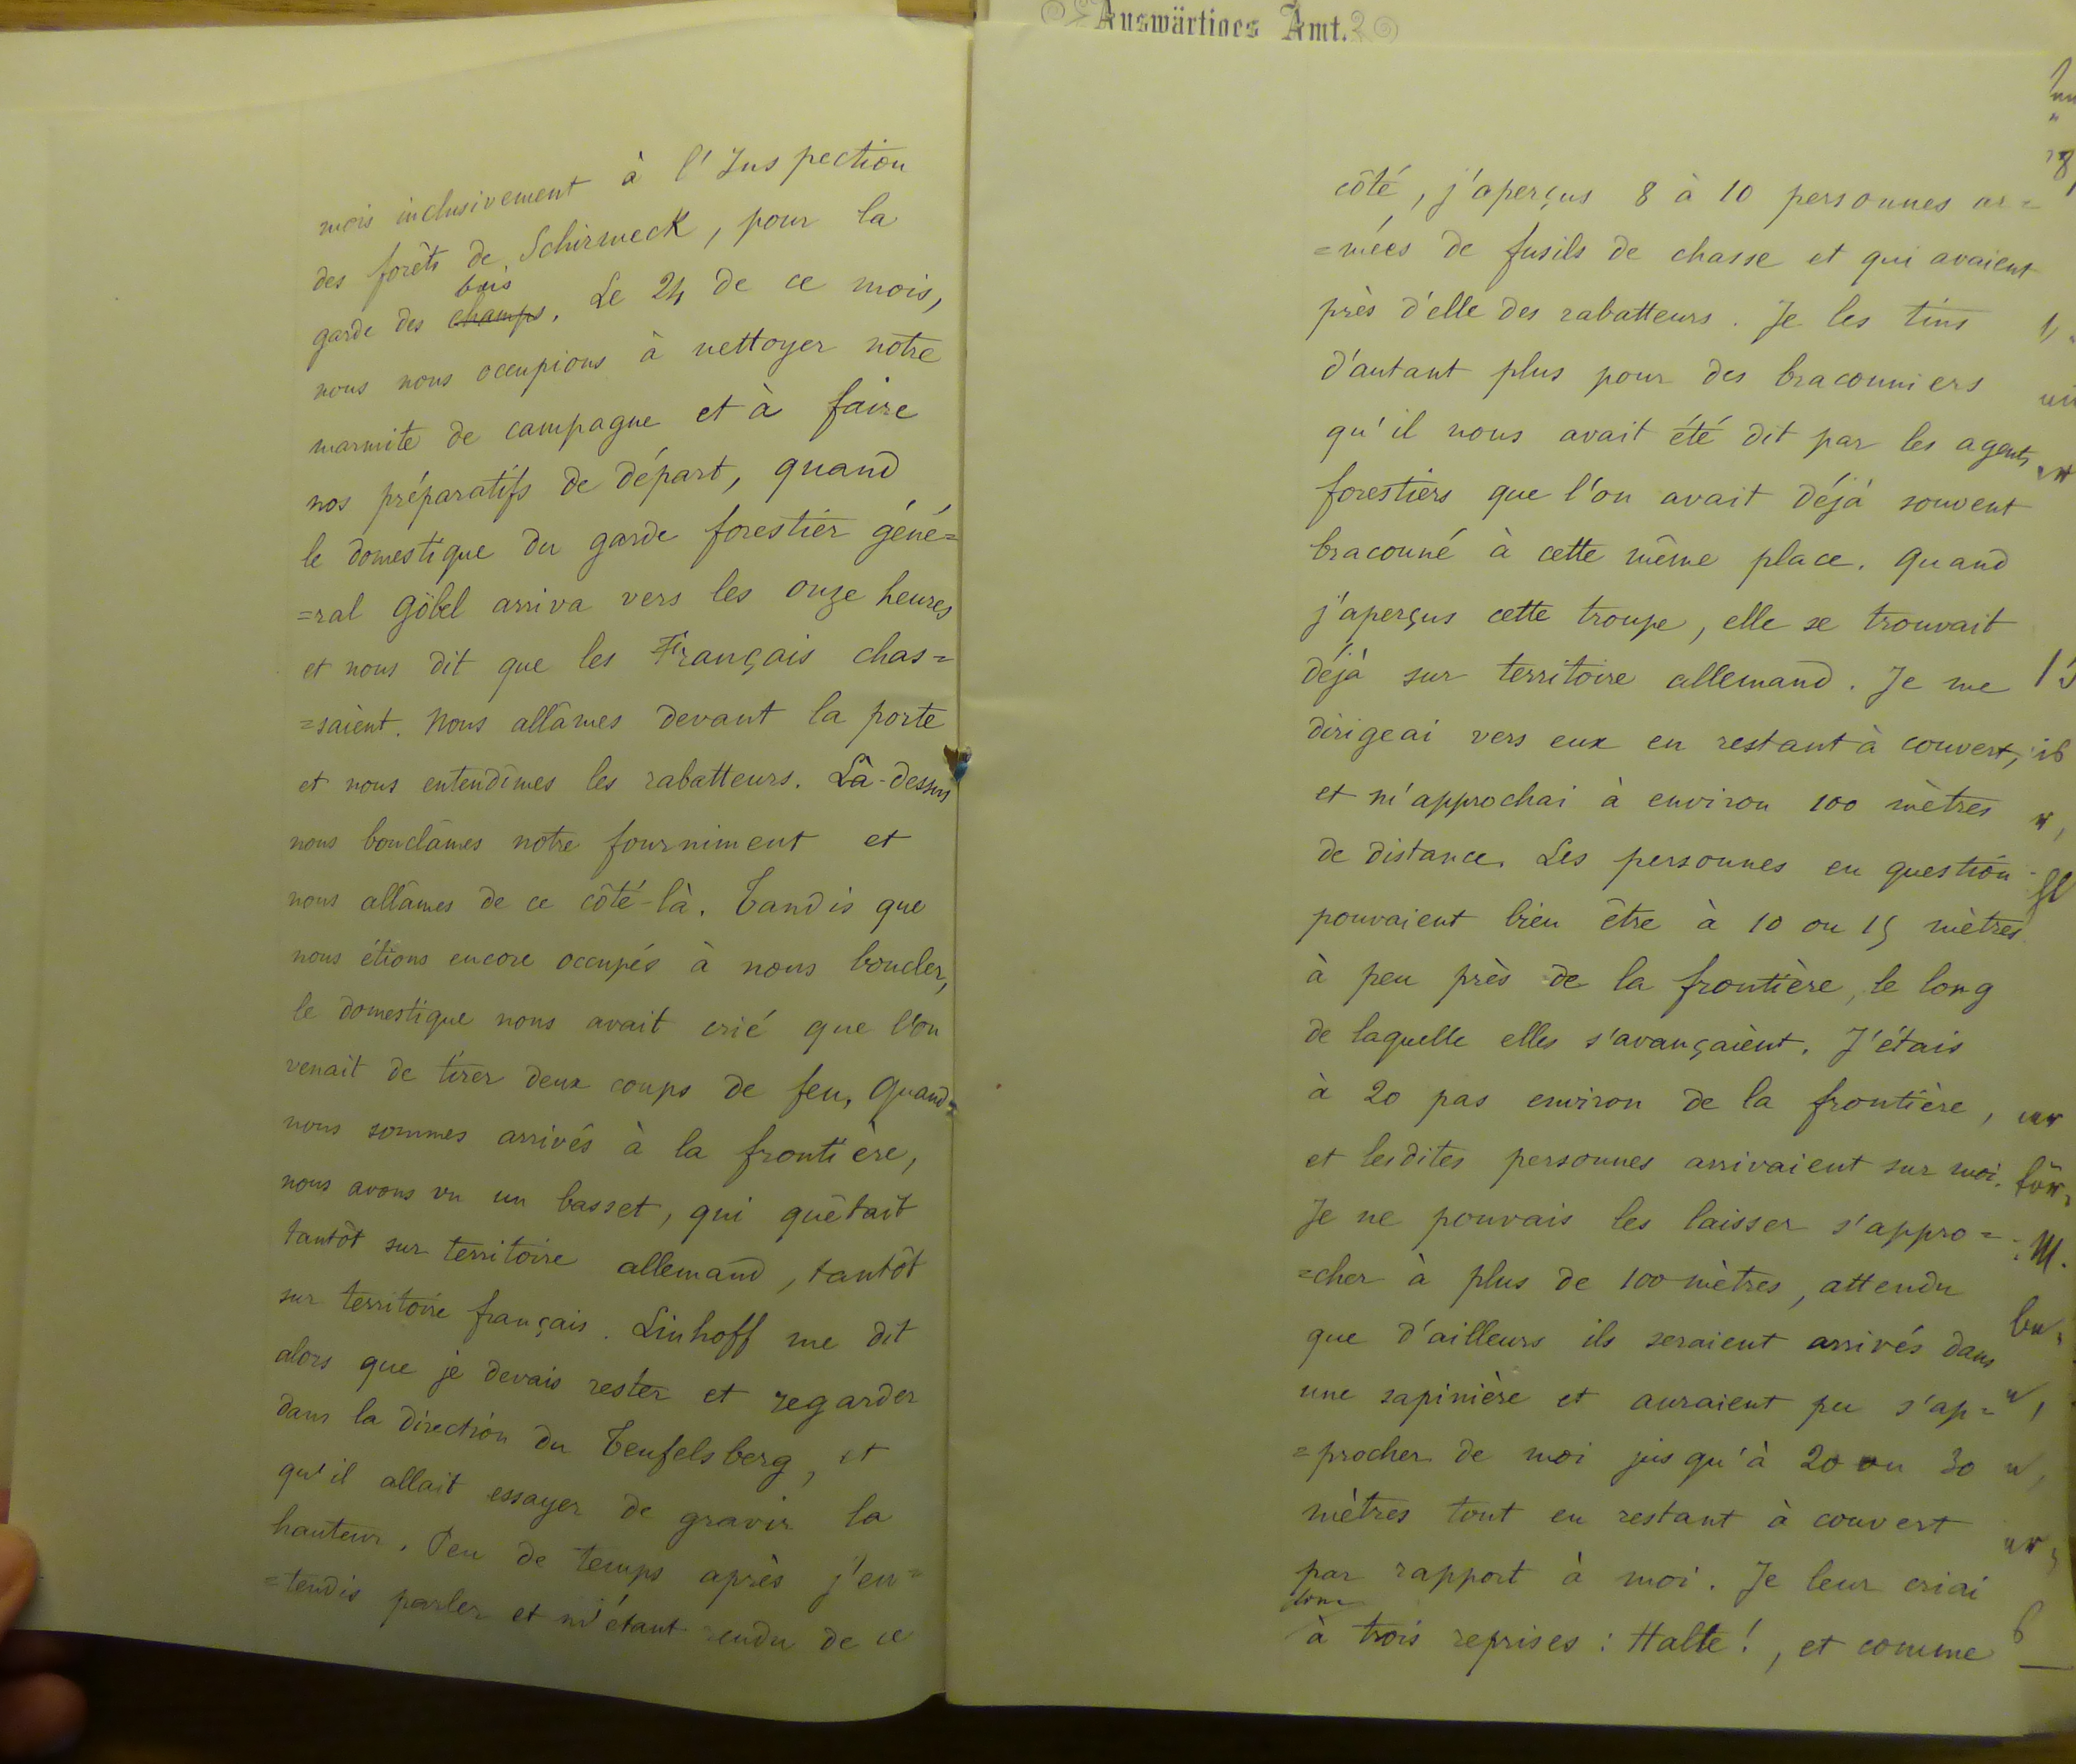 mois inclusivement à l'Inspection
des forêts de Schirmeck, pour la
bois
garde des champs. Le 24 de ce mois,
nous nous occupions à nettoyer notre
marmite de campagne et à faire
nos préparatifs de départ, quand
le domestique du garde forestier géné=
=ral Göbel arriva vers les onze heures
et nous dit que les Français chas=
=saient. Nous allâmes devant la porte
et nous entendîmes les rabatteurs. Là-dessus
nous bouclâmes notre fourniment et
nous allâmes de ce côté-là. Tandis que
nous étions encore occupés à nous boucler,
le domestique nous avait crié que l'on
venait de tirer deux coups de feu. Quand
nous sommes arrivés à la frontière,
nous avons vu un basset, qui quêtait
tantôt sur territoire allemand, tantôt
sur territoire français. Linhoff me dit
alors que je devais rester et regarder
dans la direction du Teufelsberg, et
qu'il allait essayer de gravir la
hauteur. Peu de temps après j'en=
=tendis parler et m'étant rendu de ce
Auswärtiges Amt.
côté, j'aperçus 8 à 10 personnes ar=
=mées de fusils de chasse et qui avaient
près d'elle des rabatteurs. Je les tins
d'autant plus pour des braconniers
qu'il nous avait été dit par les agents
forestiers que l'on avait déjà souvent
braconné à cette même place. Quand
j'aperçus cette troupe, elle se trouvait
déjà sur territoire allemand. Je me
dirigeai vers eux en restant à couvert,
et m'approchai à environ 100 mètres
de distance. Les personnes en question
pouvaient bien être à 10 ou 15 mètres
à peu près de la frontière, le long
de laquelle elles s'avançaient. J'étais
à 20 pas environ de la frontière,
et lesdites personnes arrivaient sur moi.
Je ne pouvais les laisser s'appro=
=cher à plus de 100 mètres, attendu
que d'ailleurs ils seraient arrivés dans
une sapinière et auraient pu s'ap=
=procher de moi jusqu'à 20 ou 30
mètres tout en restant à couvert
par rapport à moi. Je leur criai
à trois reprises : Halte !, et comme